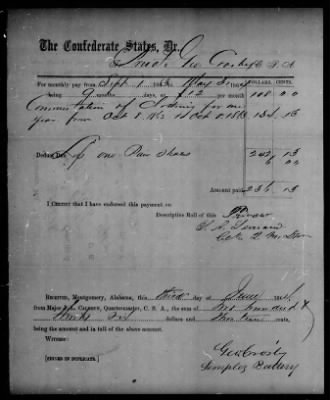 The Confederate States, Dr.
To Geo Crosby
For monthly pay from Sept 1 1863 to May 31 1864
DOLLARS. CENTS.
being 9 months days, at $12 per month 108 00
Commutation of Clothing for one
year from Oct 8. 1862 to Oct 8. 1863
Deduct for one Pair Shoes 6 00
Amount paid 236 13
I CERTIFY that I have endorsed this payment on
Descriptive Roll of this Prisoner
RECEIVED, Montgomery, Alabama, this third day of June 1864
from Major Quartermaster, C. S. A., the sum of Two hundred &
thirty six dollars and thirteen cents,
being the amount and in full of the above account.
Witness:
[SIGNED IN DUPLICATE.]
Geo Crosby
Semples Battery